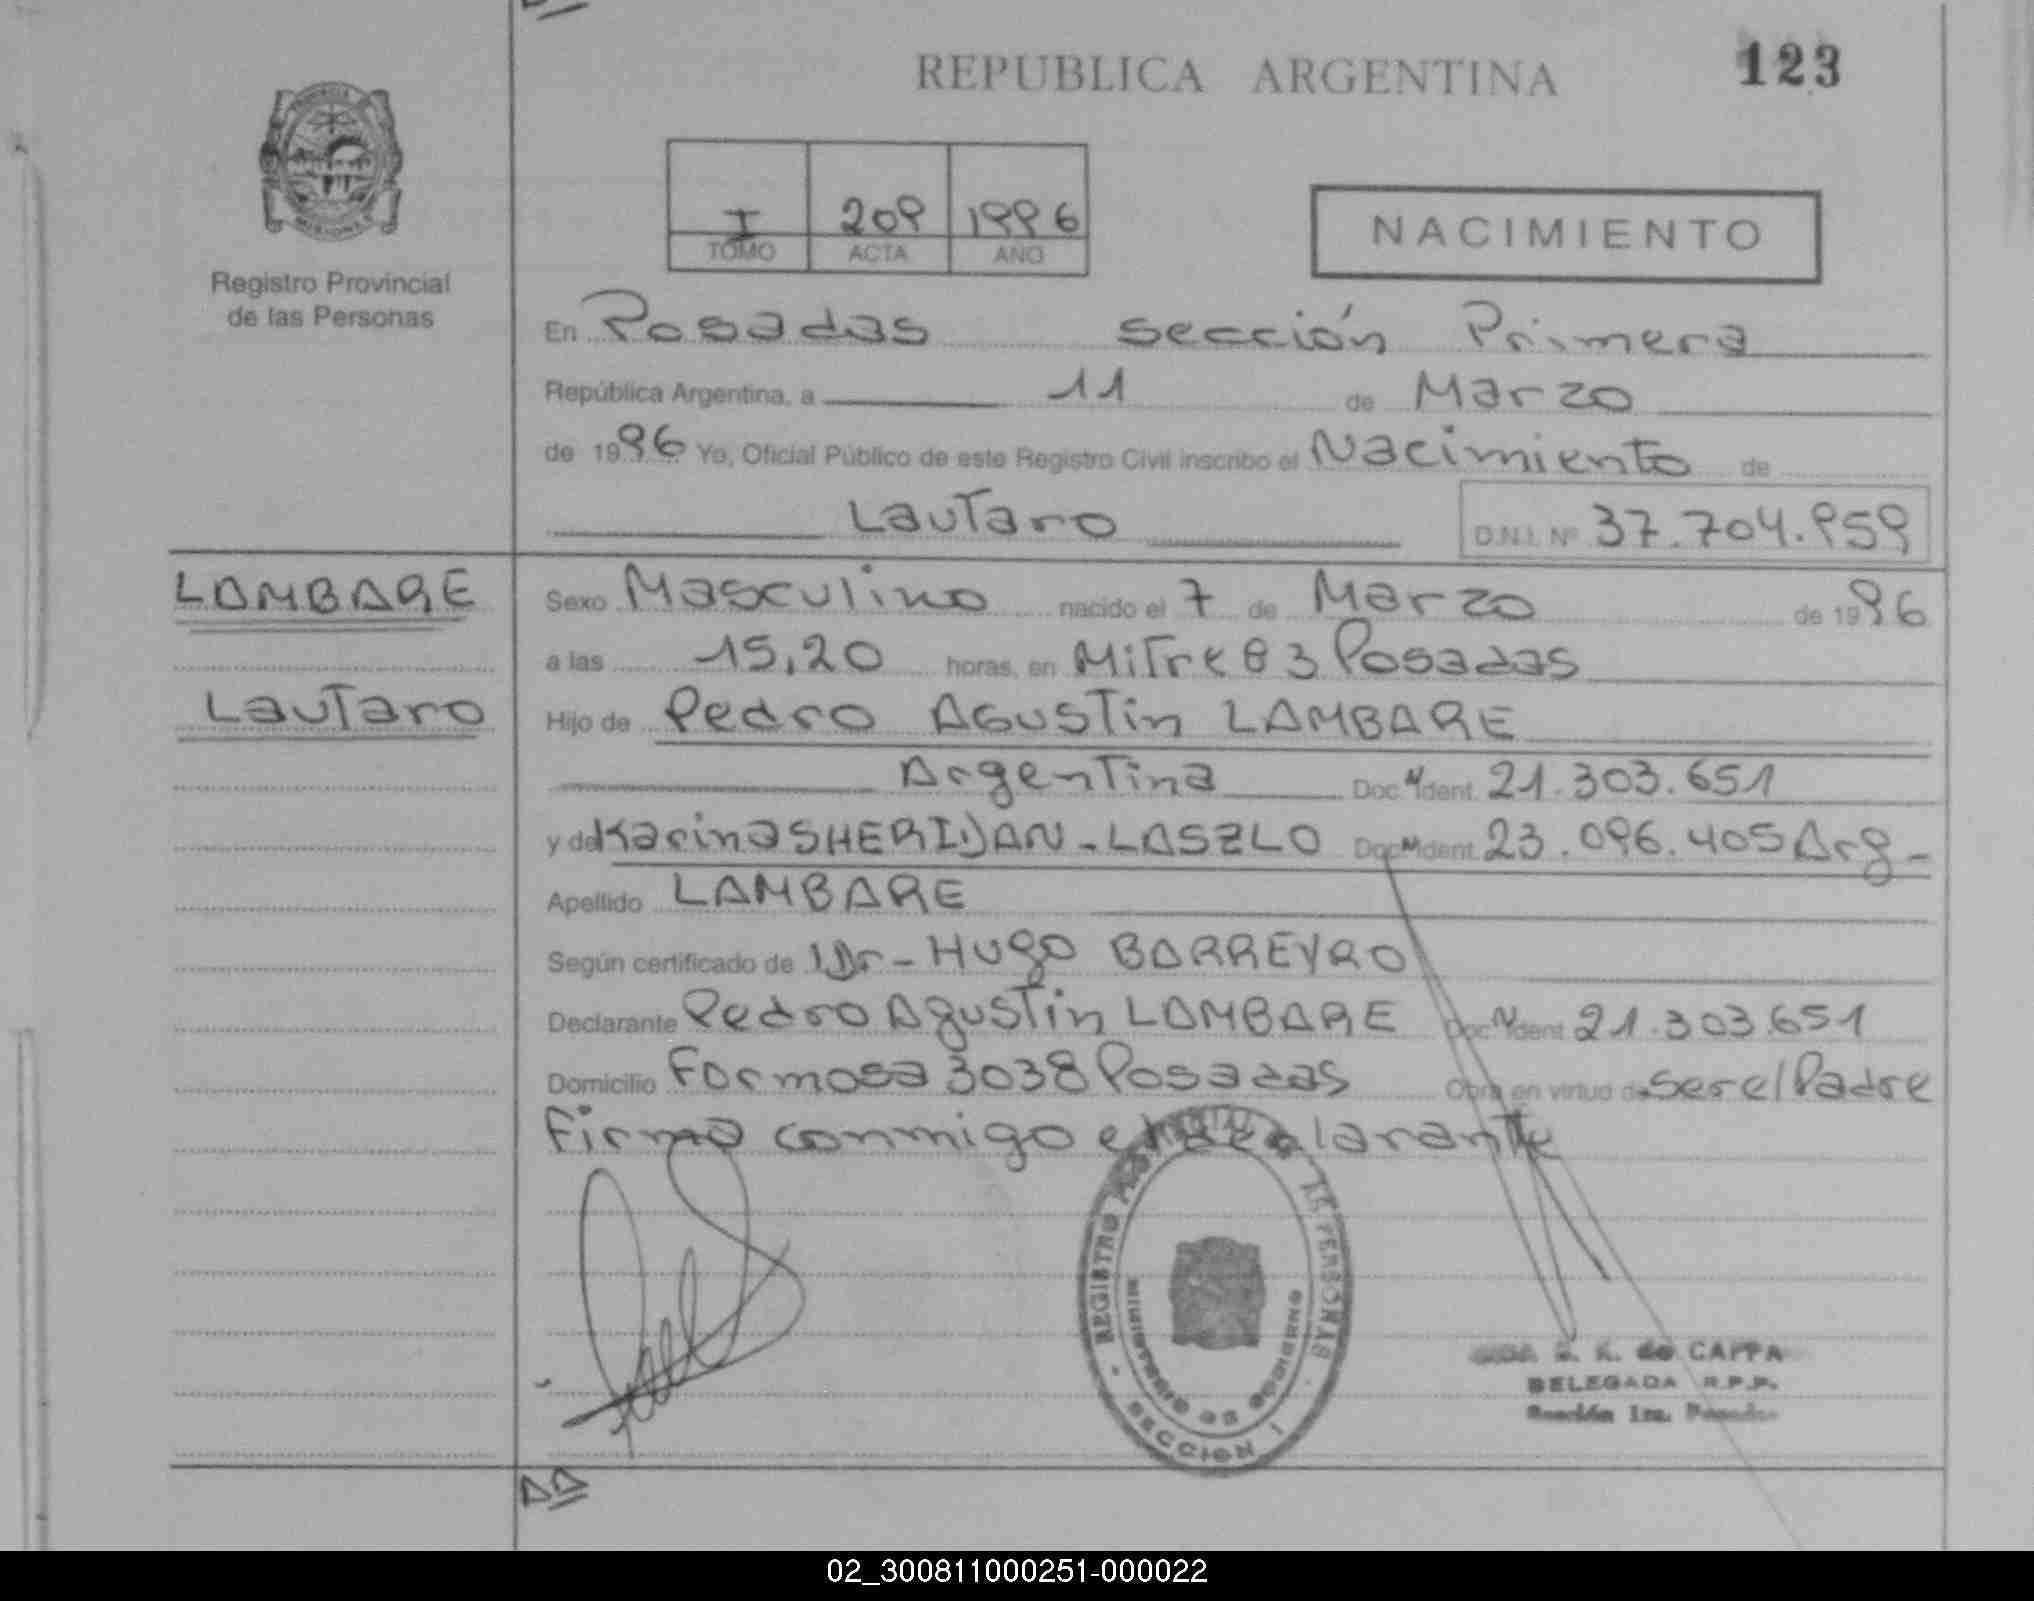 REPUBLICA ARGENTINA
123
Registro Provincial
de las Personas
I 209 1996
TOMO ACTA AÑO
NACIMIENTO
En Posadas sección Primera
República Argentina, a 11 de Marzo
de 1996 Yo, Oficial Público de este Registro Civil inscribo el Nacimiento de
Lautaro
D.N.I. Nº 37.704.959
LAMBARE
Lautaro
Sexo Masculino nacido el 7 de Marzo de 1996
a las 15,20 horas, en Mitre 83 Posadas
Hijo de Pedro Agustin LAMBARE
Argentina Doc. Ident. 21.303.651
y de Karina SHERIDAN - LASZLO Doc. Ident. 23.096.405 Arg-
Apellido LAMBARE
Según certificado de Dr- Hugo BARREYRO
Declarante Pedro Agustin LAMBARE Doc. Ident. 21.303.651
Domicilio Formosa 3038 Posadas Obra en virtud de ser el Padre
Firma conmigo el declarante
REGISTRO DE LAS PERSONAS
MINISTERIO DE GOBIERNO
SECCION 1
de CAPPA
DELEGADA R.P.P.
Sección 1ra. Posadas
02_300811000251-000022